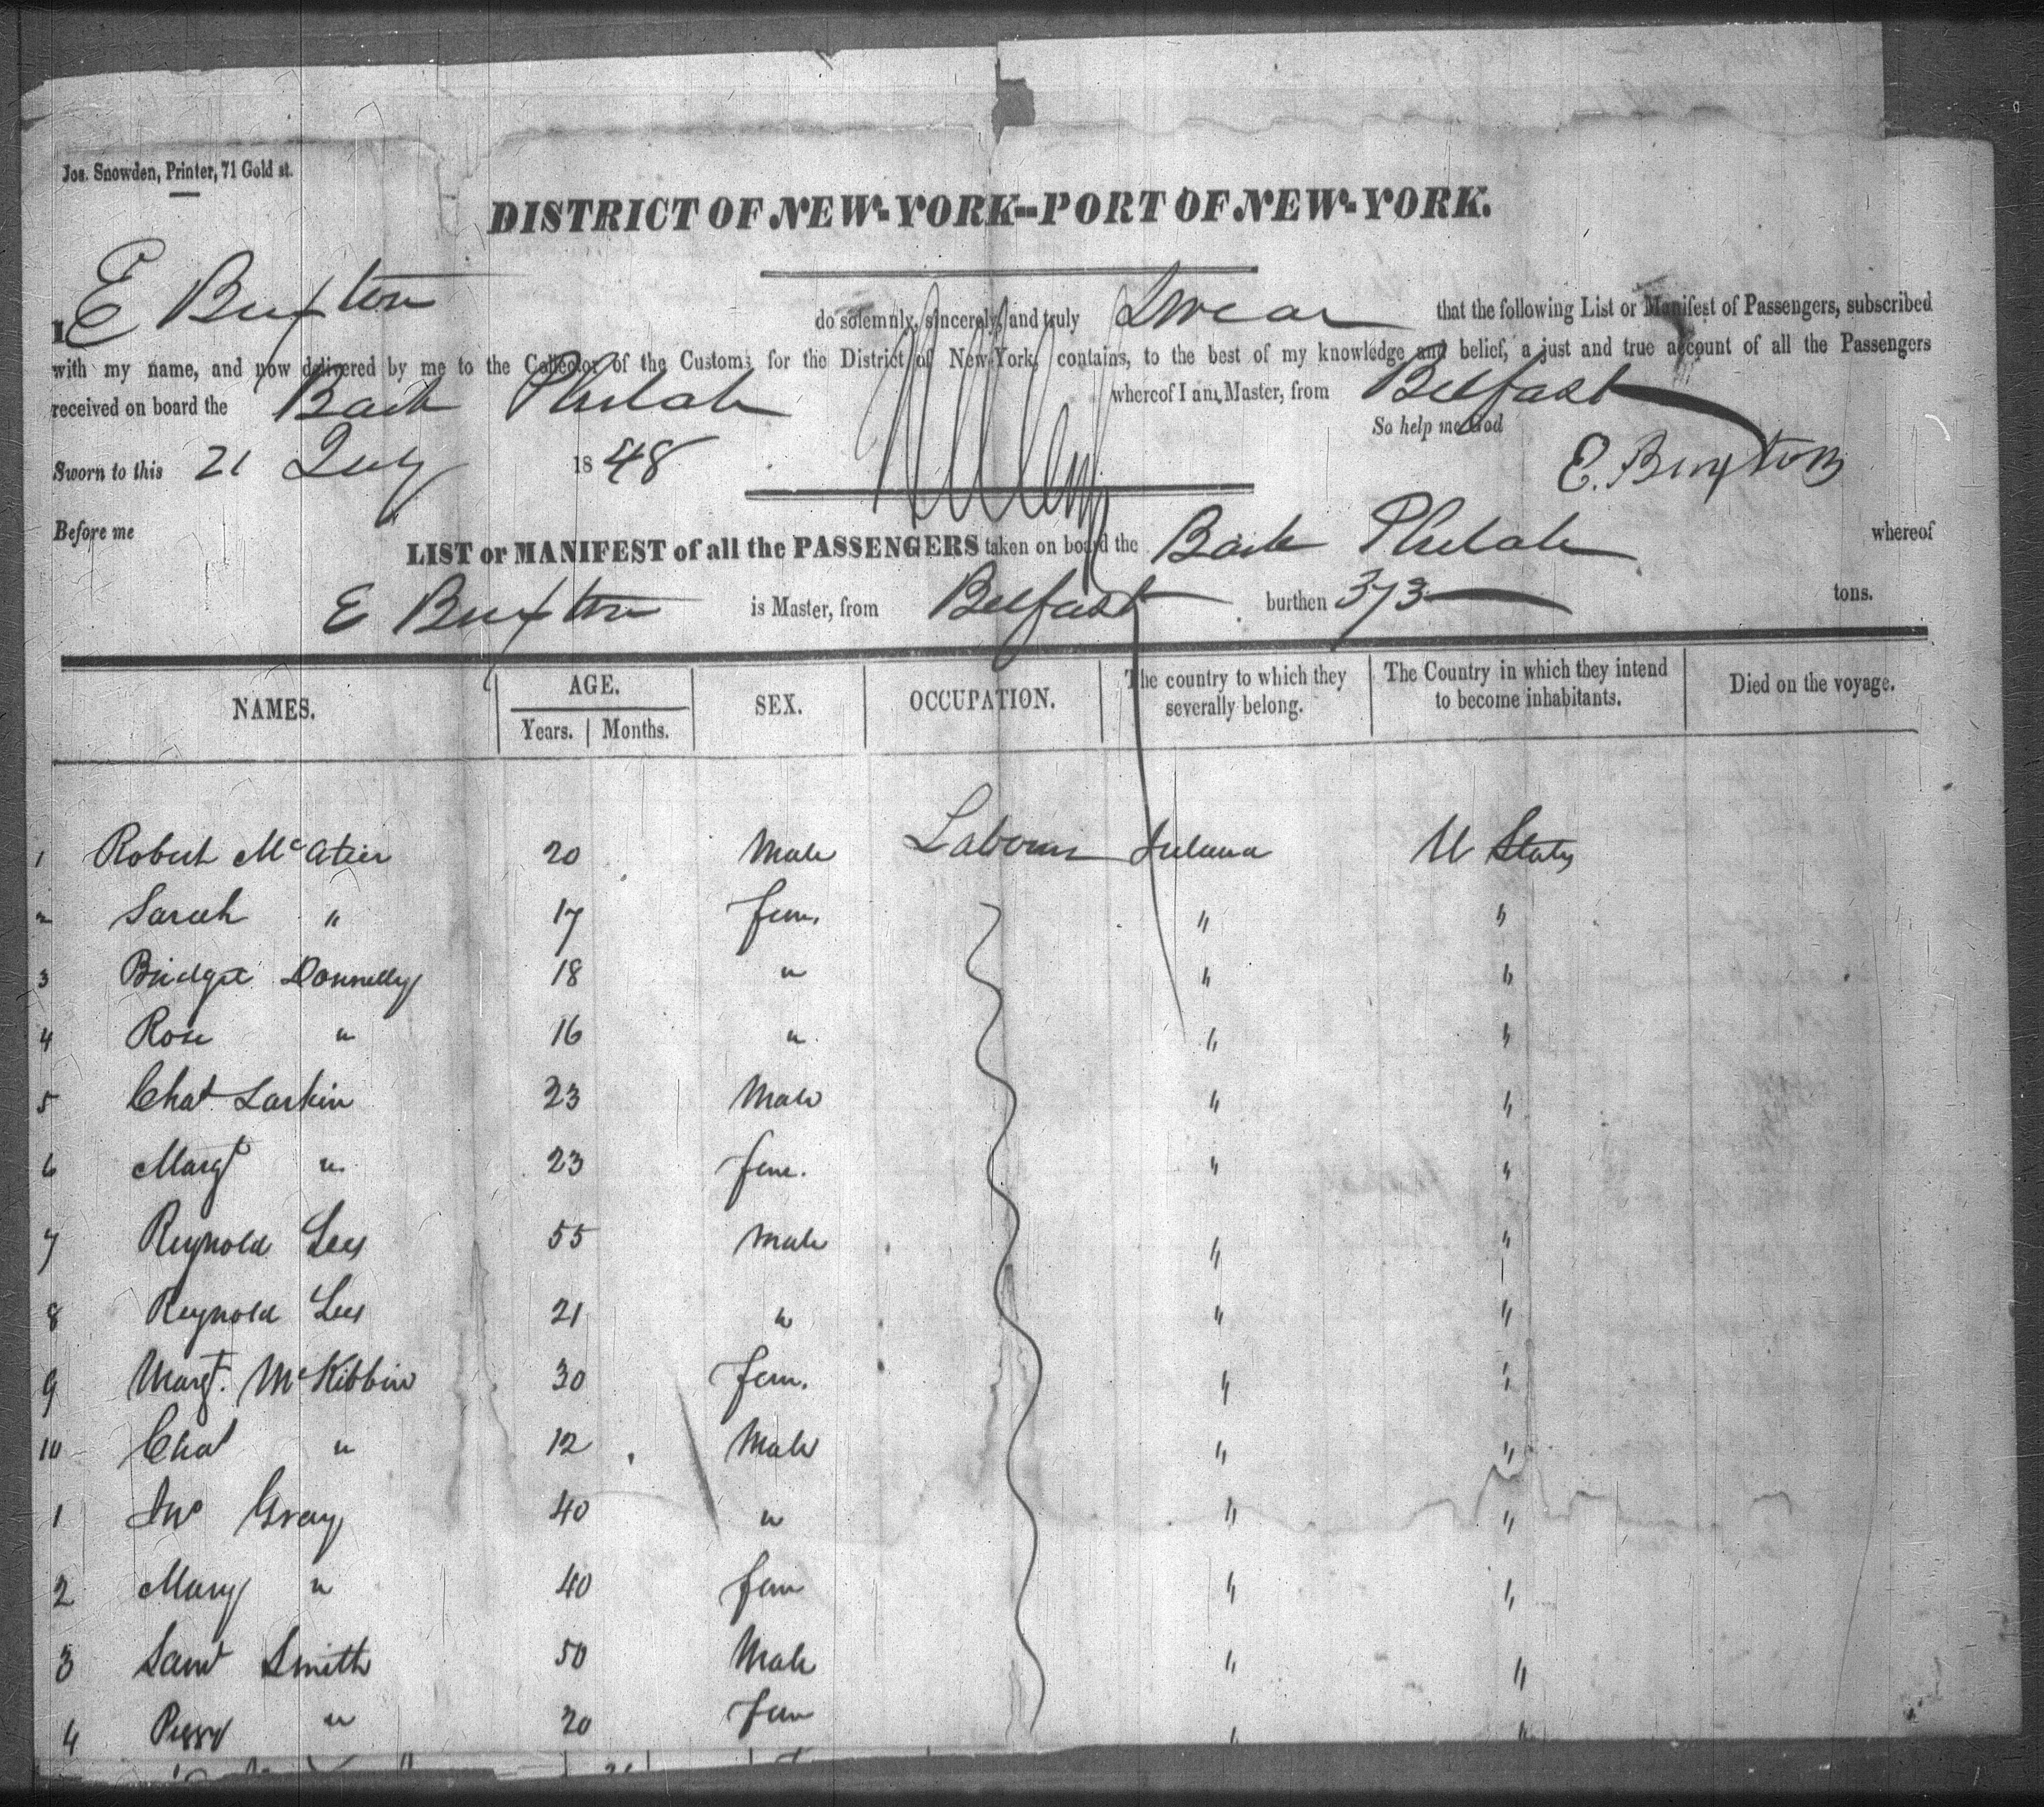 Jos. Snowden, Printer, 71 Gold st.
DISTRICT OF NEW-YORK--PORT OF NEW-YORK.
I E Buxton do solemnly, sincerely, and truly Swear that the following List or Manifest of Passengers, subscribed
with my name, and now delivered by me to the Collector of the Customs for the District of New-York, contains, to the best of my knowledge and belief, a just and true account of all the Passengers
received on board the Bark Philah whereof I am Master, from Belfast
So help me God
Sworn to this 21 July 1848 E. Buxton
Before me
LIST or MANIFEST of all the PASSENGERS taken on board the Bark Philah whereof
E Buxton is Master, from Belfast burthen 373 tons.
NAMES. AGE. Years. Months. SEX. OCCUPATION. The country to which they severally belong. The Country in which they intend to become inhabitants. Died on the voyage.
1 Robert McAteer 20 Male Labourer Ireland U States
2 Sarah " 17 fem. " "
3 Bridget Donnelly 18 " " "
4 Rose " 16 " " "
5 Chas Larkin 23 Male " "
6 Margt " 23 fem. " "
7 Reynold Lees 55 Male " "
8 Reynold Lees 21 " " "
9 Margt. McKibbin 30 Fem. " "
10 Chas " 12 Male " "
1 Jno Gray 40 " " "
2 Mary " 40 fem " "
3 Saml Smith 50 Male " "
4 " 20 Fem " "